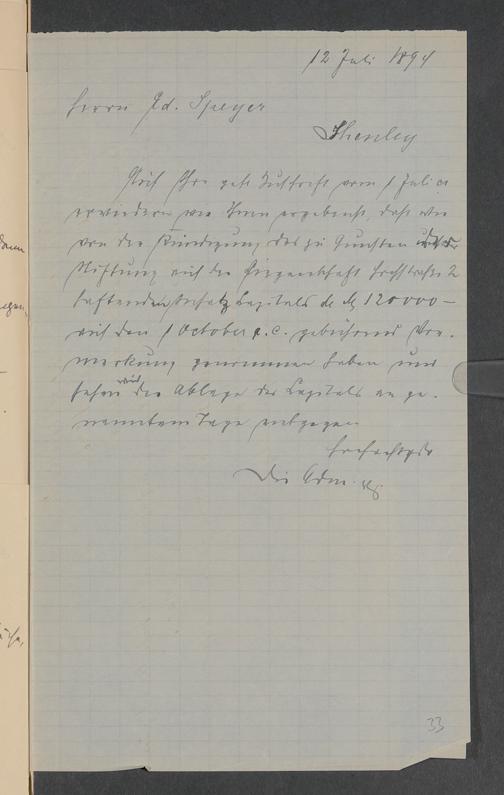 12 Juli 1894
Herrn Ed. Speyer
Shenley
Auf Ihre gefl. Zuschrift vom 1 Juli cr
erwiedern wir Ihnen ergebenst, daß wir
von der Kündigung des zu Gunsten
Stiftung auf der Liegenschaft Hochstraße 2
haftenden Insatz Capitals de M 120000 –
auf den 1 October a. c. gebührend Vor-
merkung genommen haben und
sehen wir der Ablage des Capitals an ge-
nanntem Tage entgegen
Hochachtend
Die Adm.
33